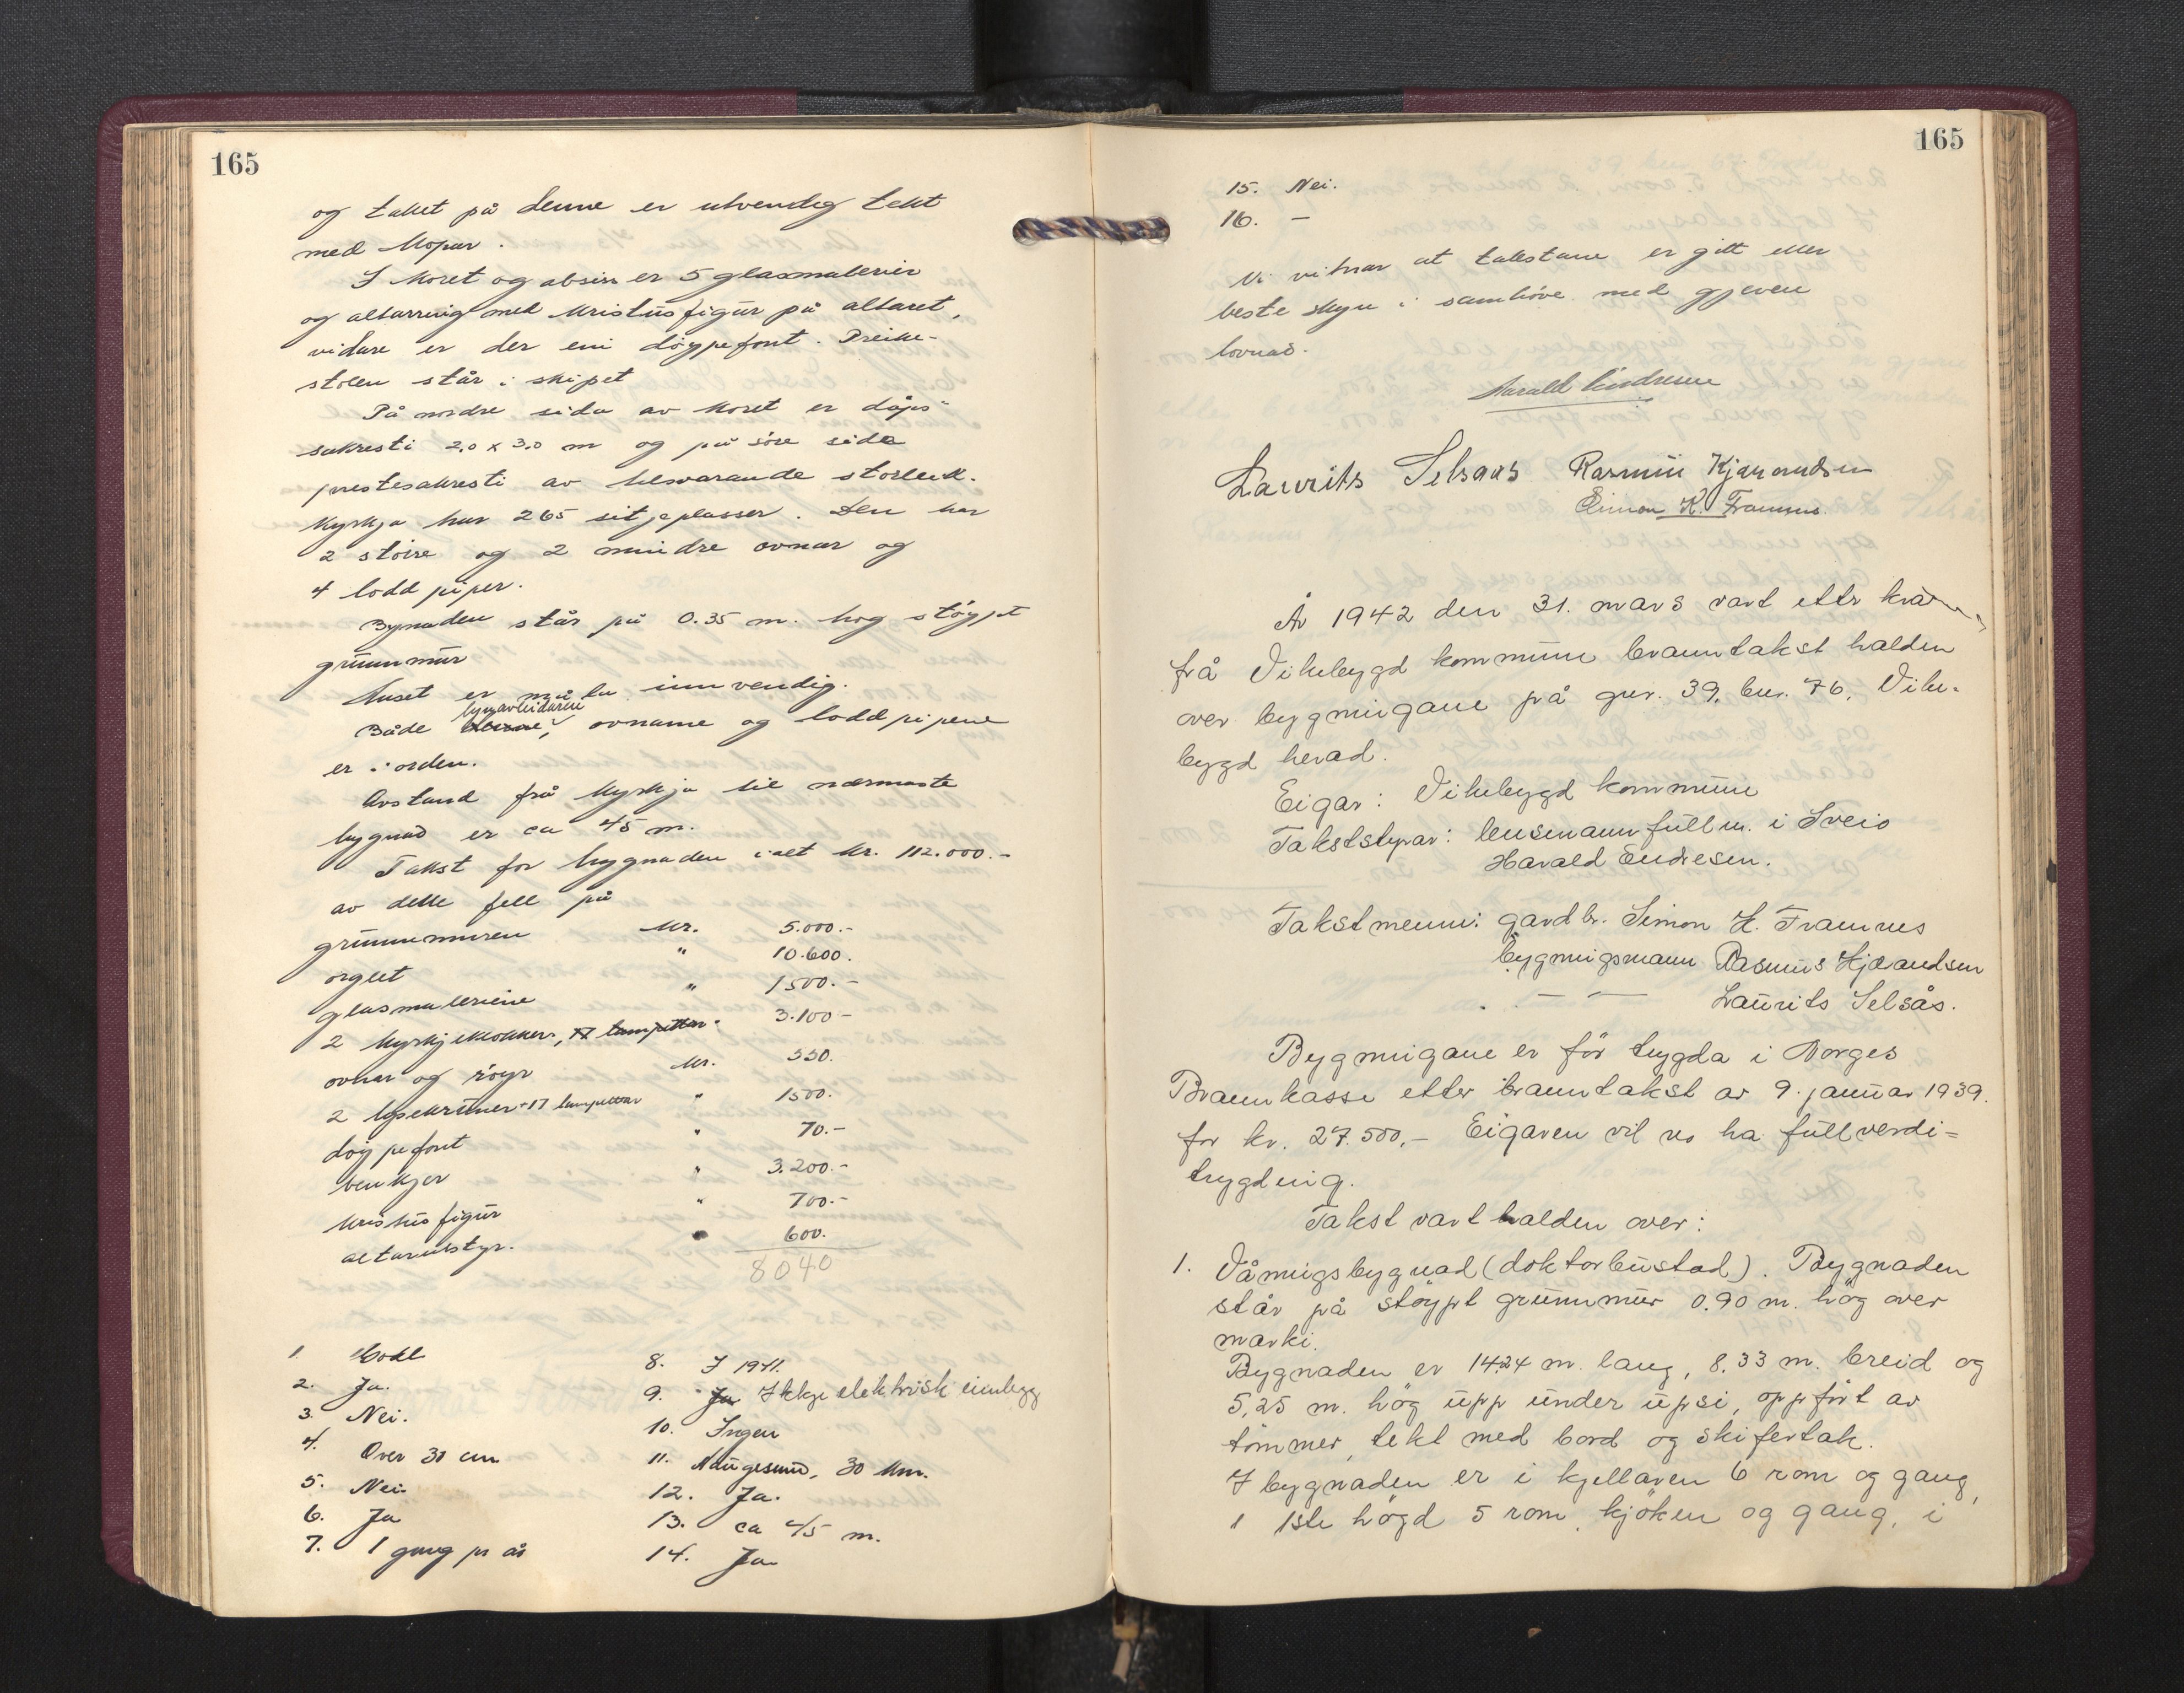 165
og taket på denne er utvendig tekt
med kopar.
I koret og absis er 5 glasmalerier
og altarring med kristusfigur på altaret,
vidare er der ein døypefont. Preike-
stolen står i skipet
På nordre sida av koret er dåps-
sakresti 2.0 x 3.0 m og på søre sida
prestesakresti av tilsvarande storleik.
Kyrkja har 265 sitjeplasser. Den har
2 støre og 2 mindre ovnar og
4 loddpiper.
Bygnaden står på 0.35 m. høg støypt
grunnmur
Huset er måla innvendig.
bygavleidarene
Både denne, ovnane og loddpipene
er i orden.
Avstand frå kyrkja til nærmaste
bygnad er ca 45 m.
Takst for bygnaden ialt kr. 112.000.-
av dette fell på
grunnmuren kr. 5.000.-
orglet " 10.600.
glasmaleriene " 1500.-
2 kyrkjeklokker, 17 lampettar. 3.100-
ovnar og røyr kr. 550.
2 lysekruner + 17 lampettar " 1500.
døypefont " 70.-
benkjer " 3.200.-
kristusfigur " 700.-
altarutstyr. " 600.
8040
1. Godt
2. Ja.
3. Nei.
4. Over 30 cm
5. Nei.
6. Ja
7. 1 gang pr år
8. I 1941.
9. Ja Ikkje elektrisk innlegg
10. Ingen
11. Haugesund, 30 km.
12. Ja.
13. ca 45 m.
14. Ja
165
15. Nei.
16. -
Vi vitnar at takstane er gitt etter
beste skyn i samhöve med gjeven
lovnad.
Harald Endresen
Laurits Selsaas Rasmus Kjærandsen
Simon H. Framnes.
År 1942 den 31. mars vart ettr krav
frå Vikebygd kommune branntakst halden
over bygnigane på gnr. 39, bnr. 76, Vike-
bygd herad.
Eigar: Vikebygd kommune
Takststyrar: lensmannfullm. i Sveio
Harald Endresen.
Takstmenn: gardbr. Simon H. Framnes
bygnigsmann Rasmus Kjærandsen
- " - Laurits Selsås.
Bygnigane er för trygda i Norges
Brannkasse etter branntakst av 9. januar 1939.
for kr. 27.500,- Eigaren vil no ha fullverdi=
trygding.
Takst vart halden over:
1. Våningsbygnad (doktorbustad). Bygnaden
står på støypt grunnmur 0.90 m. høg over
marki.
Bygnaden er 14.24 m. lang, 8.33 m. breid og
5,25 m. høg upp under upsi, oppført av
tømmer, tekt med bord og skifertak.
I bygnaden er i kjellaren 6 rom og gang,
i 1ste høgd 5 rom, kjøken og gang, i